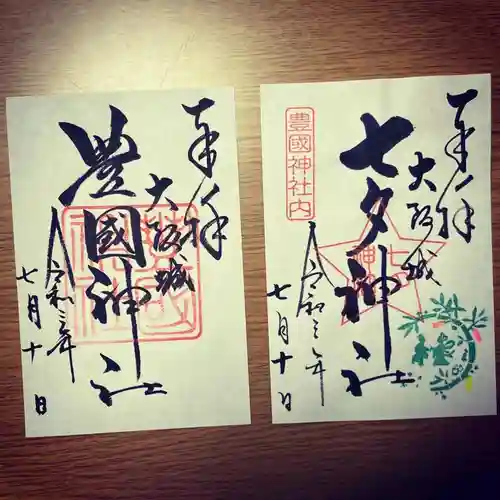 奉拝
大阪城
豊國神社
令和三年
七月十日
奉拝
大阪城
豊國神社内
七夕神社
令和三年
七月十日